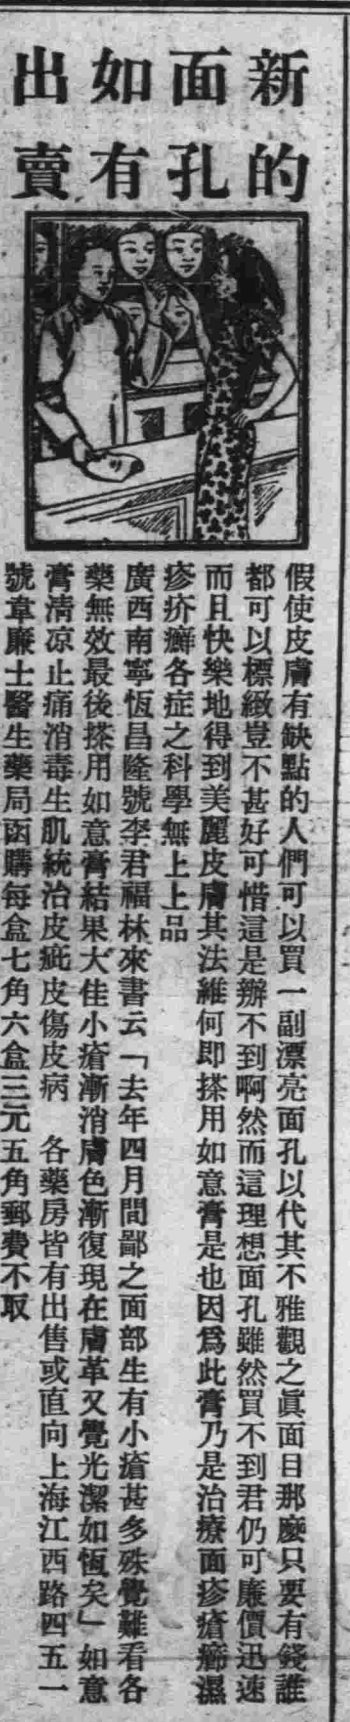 新的
面孔
如有
出賣
假使皮膚有缺點的人們可以買一副漂亮面孔以代其不雅觀之眞面目那麼只要有錢誰
都可以標緻豈不甚好可惜這是辦不到啊然而這理想面孔雖然買不到君仍可廉價迅速
而且快樂地得到美麗皮膚其法維何即搽用如意膏是也因爲此膏乃是治療面疹瘡癤濕
疹疥癬各症之科學無上上品
廣西南寧恆昌隆號李君福林來書云「去年四月間鄙之面部生有小瘡甚多殊覺難看各
藥無效最後搽用如意膏結果大佳小瘡漸消膚色漸復現在膚革又覺光潔如恆矣」如意
膏清凉止痛消毒生肌統治皮疵皮傷皮病 各藥房皆有出售或直向上海江西路四五一
號韋廉士醫生藥局函購每盒七角六盒三元五角郵費不取